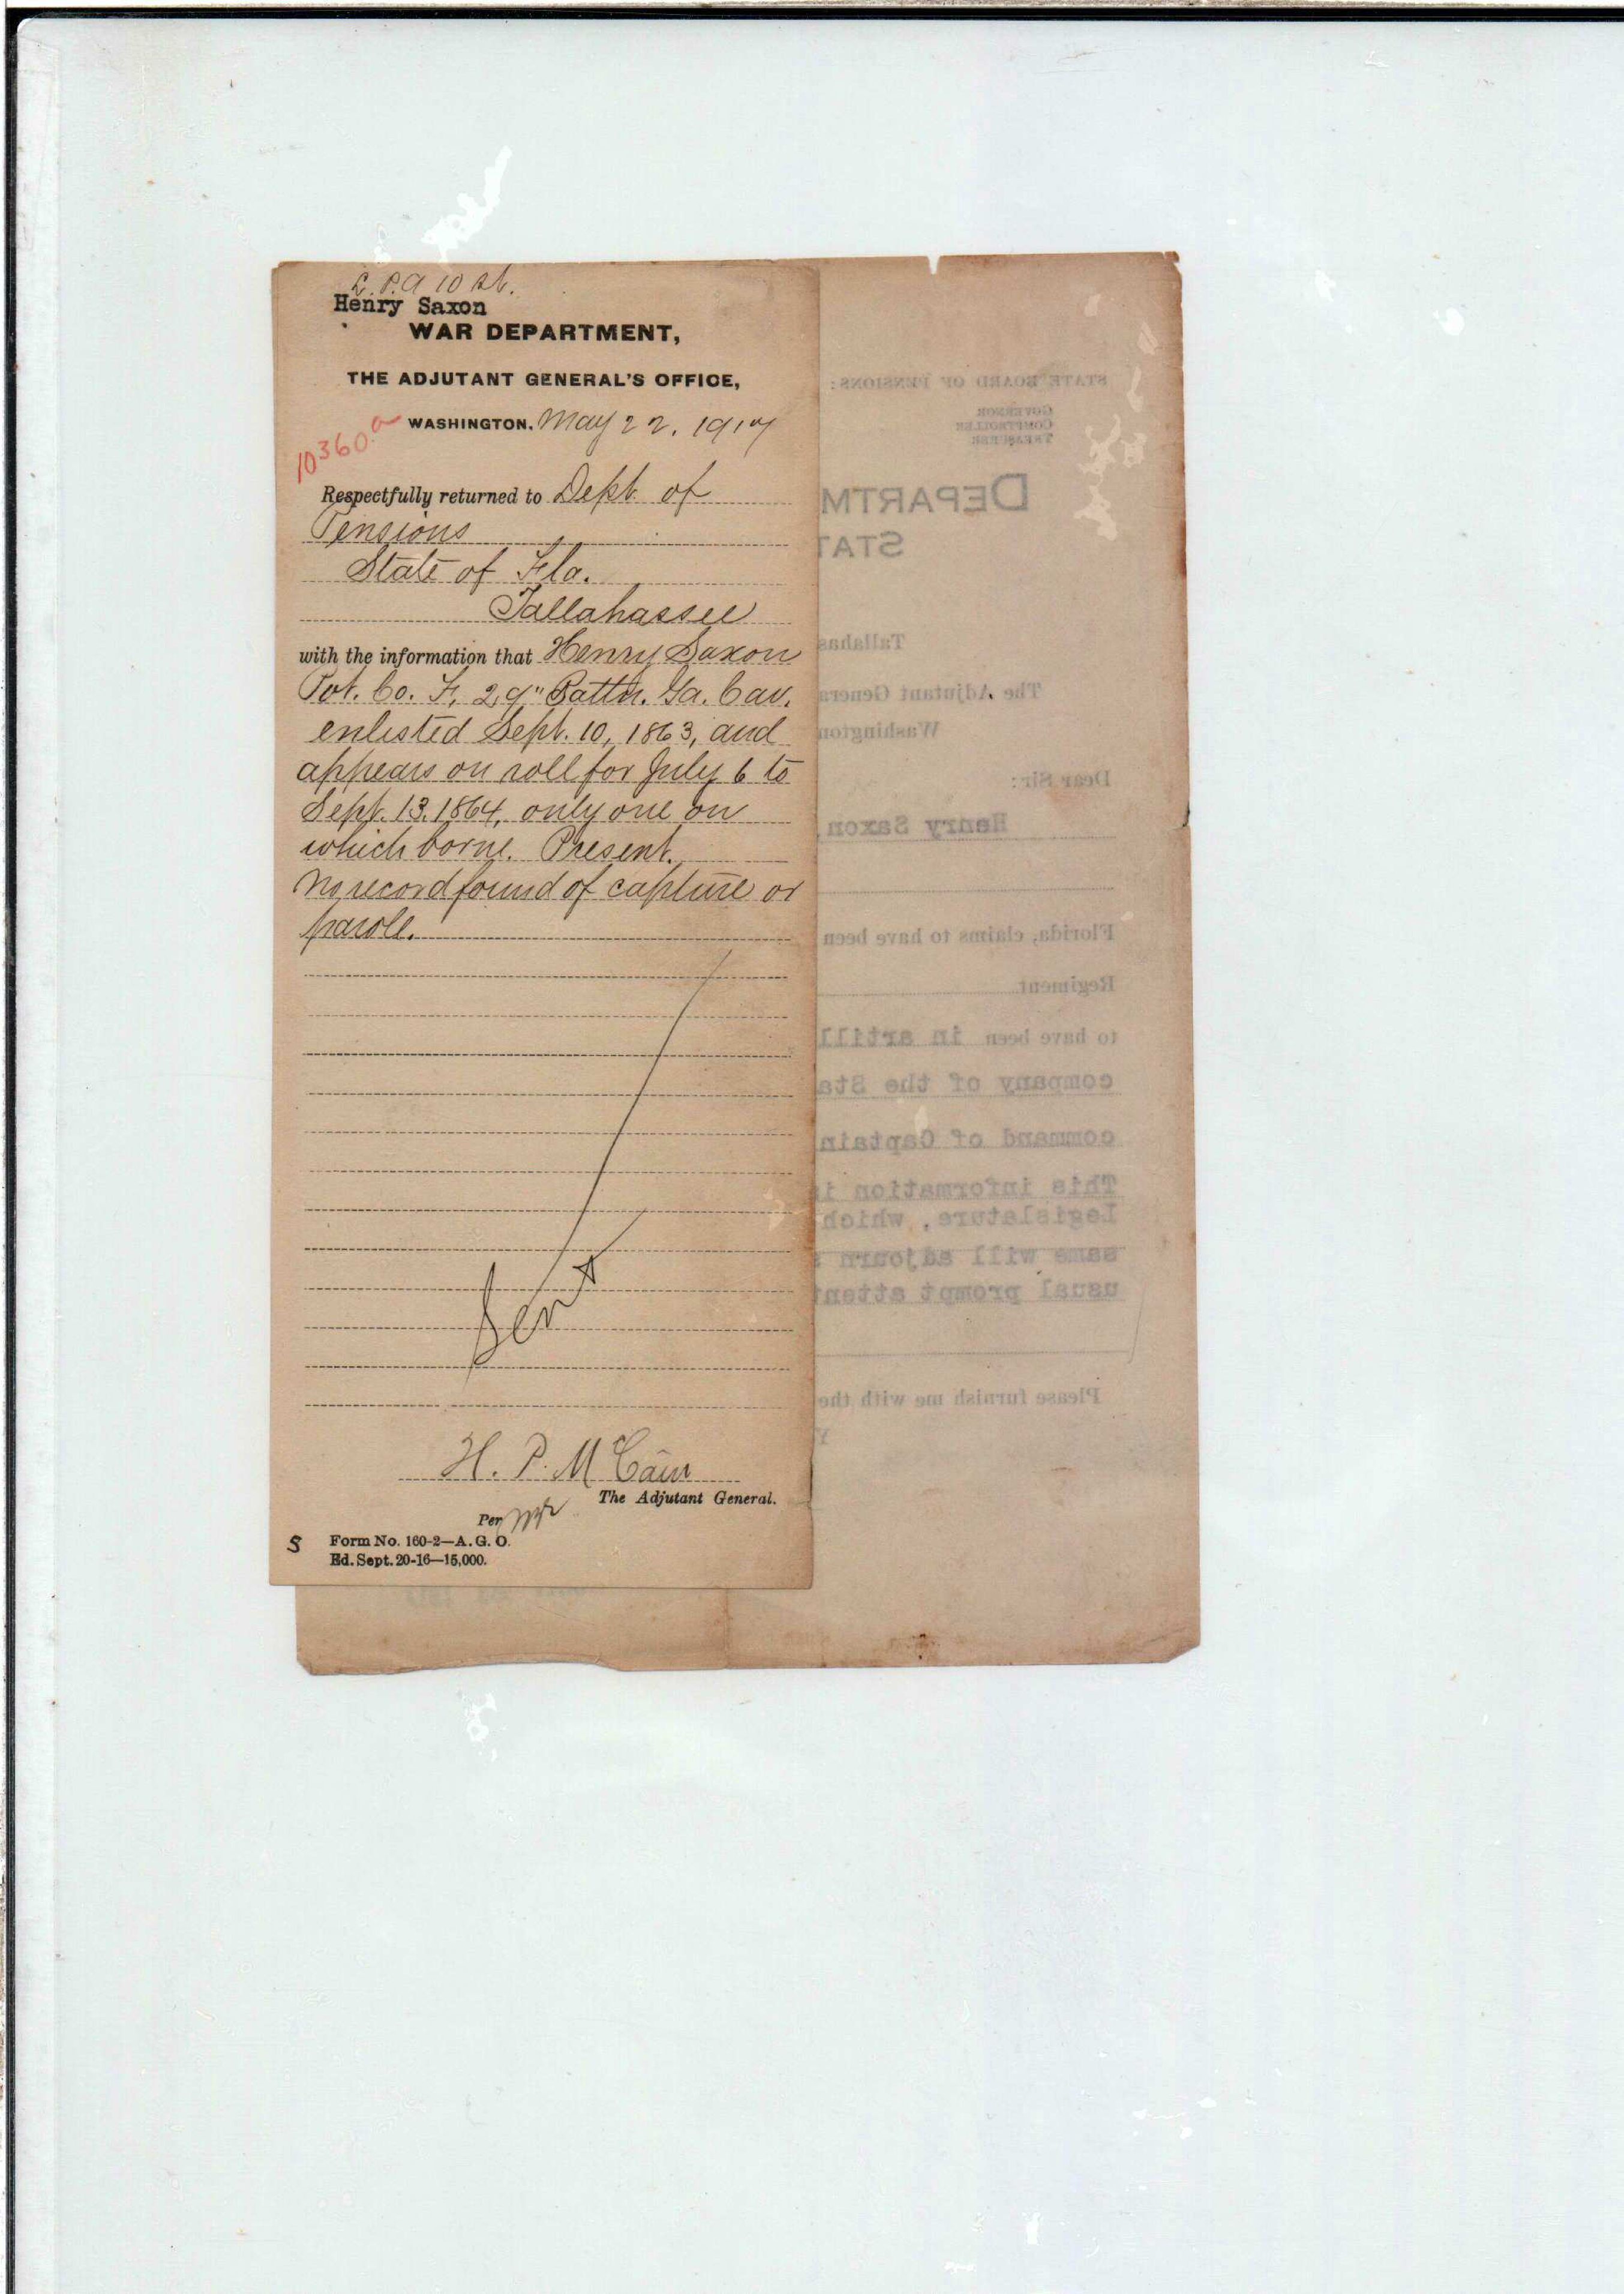 L. P. A 10 st.
Henry Saxon
WAR DEPARTMENT,
THE ADJUTANT GENERAL'S OFFICE,
WASHINGTON. May 22, 1917
10360
Respectfully returned to Dept. of
Pensions
State of Fla.
Tallahassee
with the information that Henry Saxon
Pvt. Co. F, 29" Battn. Ga. Cav.
enlisted Sept. 10, 1863, and
appears on roll for July 6 to
Sept. 13, 1864, only one on
which borne. Present.
No record found of capture or
parole.
Sent
H. P. McCain
The Adjutant General.
Per
5 Form No. 160-2—A. G. O.
Ed. Sept. 20-16—15,000.
STATE BOARD OF PENSIONS:
GOVERNOR
COMPTROLLER
TREASURER
DEPARTM
STAT
Tallahas
The Adjutant Genera
Washington
Dear Sir:
Henry Saxon
Florida, claims to have been
Regiment
to have been in artill
company of the Sta
command of Captain
This information i
Legislature, which
same will adjourn
usual prompt atten
Please furnish me with the